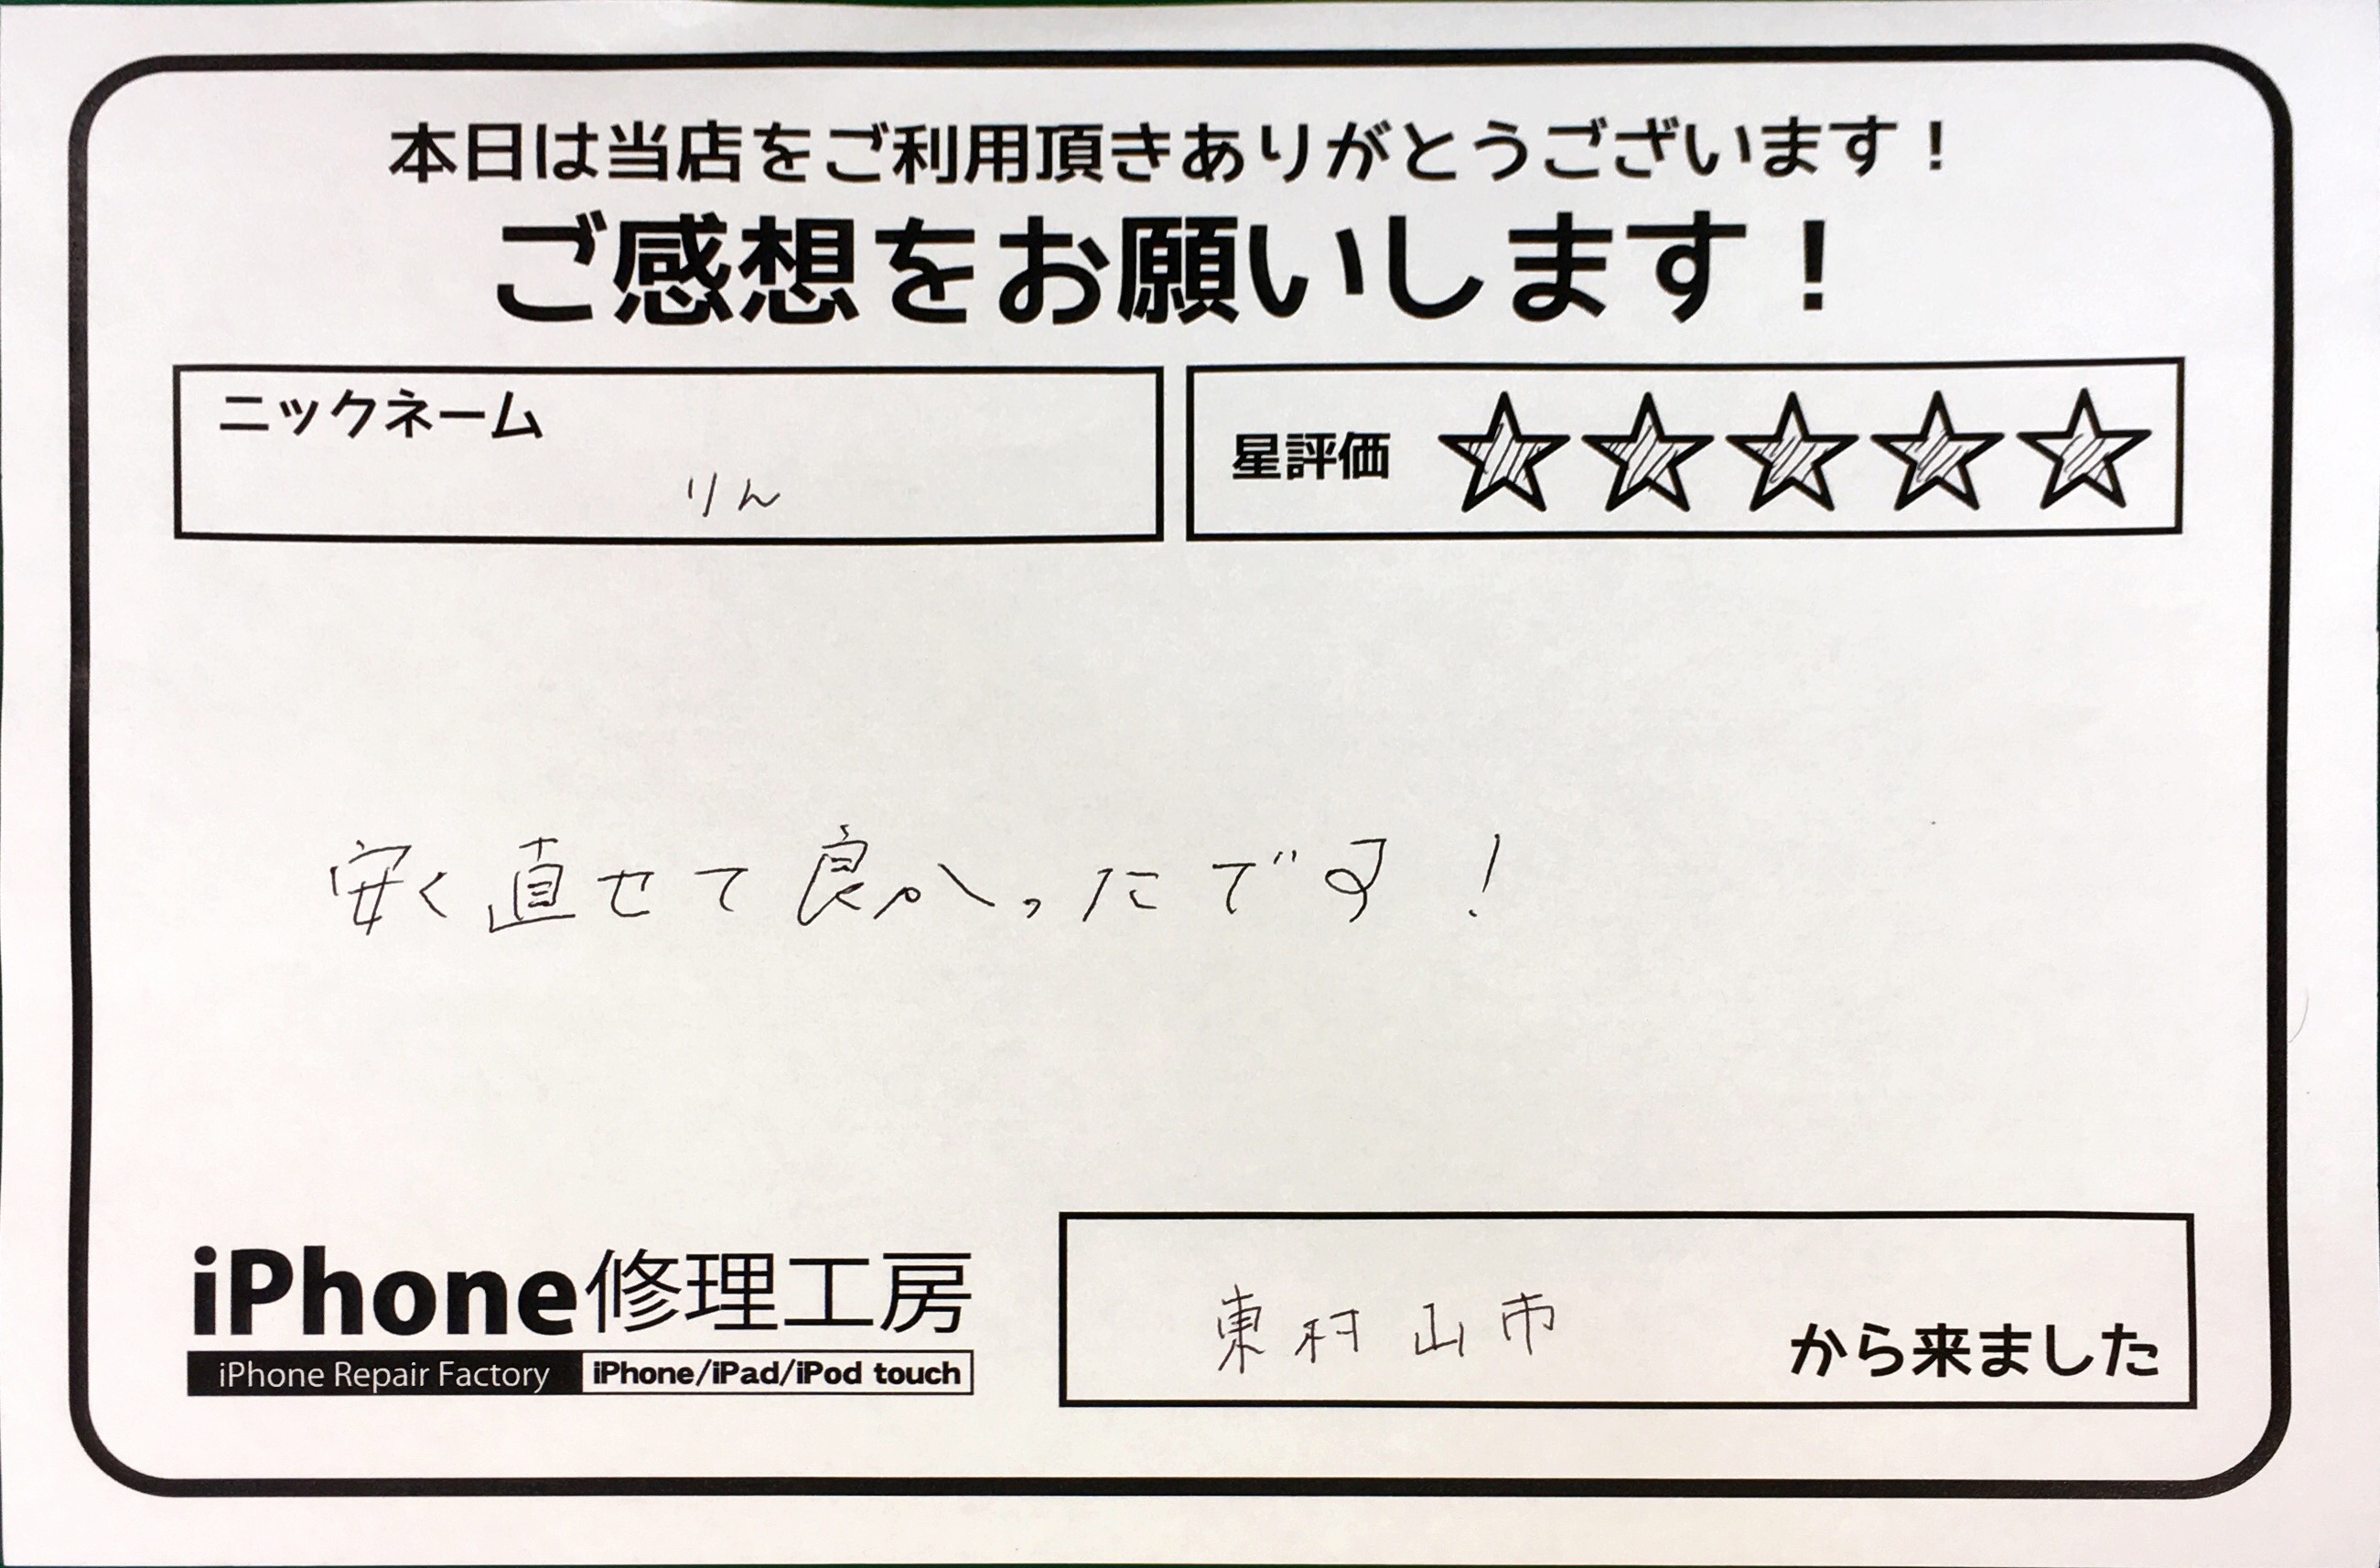 本日は当店をご利用頂きありがとうございます！
ご感想をお願いします！
ニックネーム
りん
星評価 ☆☆☆☆☆
安く直せて良かったです！
iPhone修理工房
iPhone Repair Factory iPhone/iPad/iPod touch
東村山市 から来ました